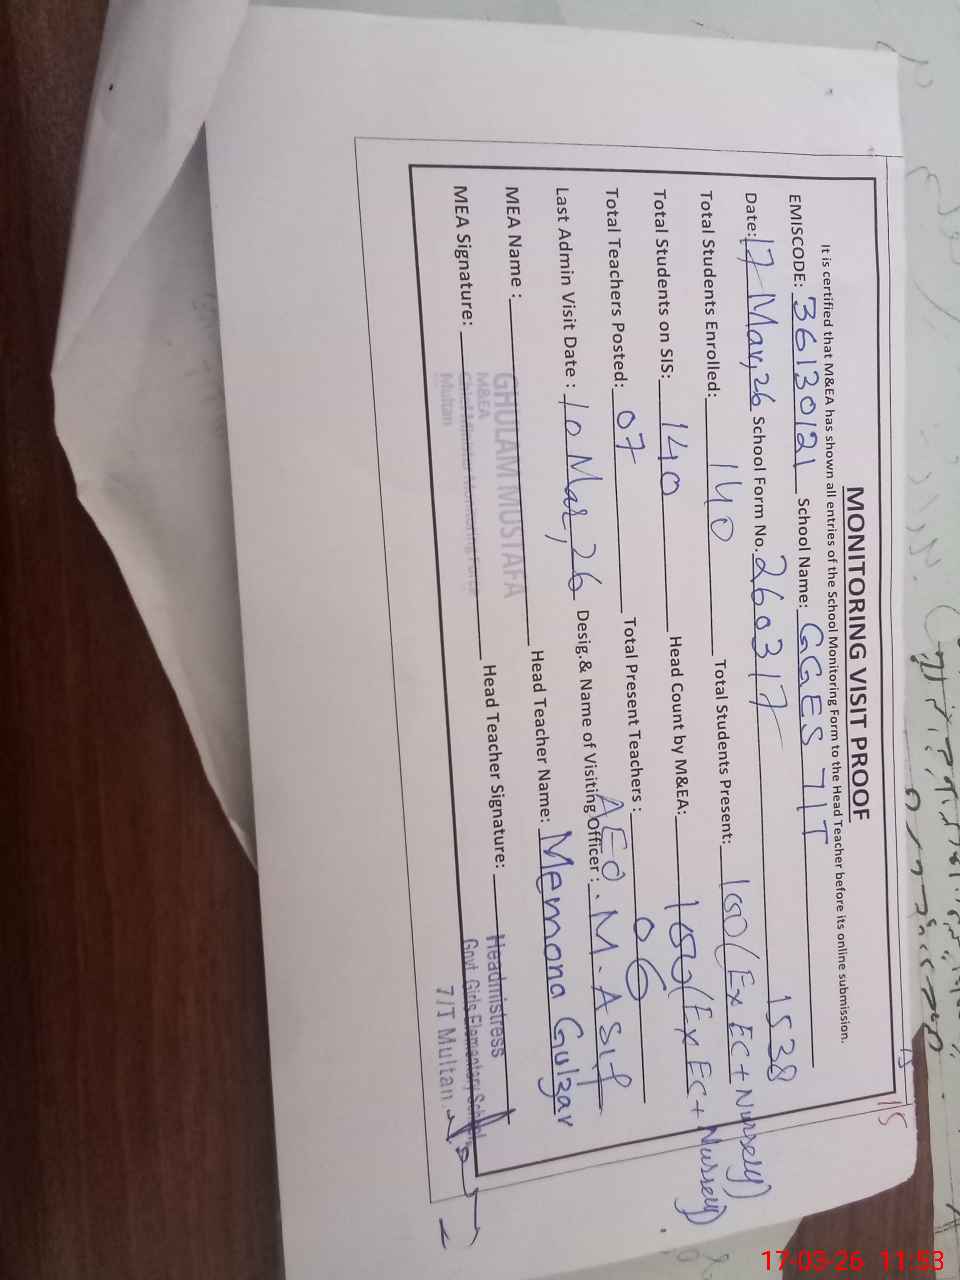 MONITORING VISIT PROOF
It is certified that M&EA has shown all entries of the School Monitoring Form to the Head Teacher before its online submission.
EMISCODE: 36130121 School Name: GGES 7/T
Date: 17 Mar, 26 School Form No. 260317 1538
Total Students Enrolled: 140 Total Students Present: (Ex EC + Nursery)
Total Students on SIS: 140 Head Count by M&EA: (Ex EC + Nursery)
Total Teachers Posted: 07 Total Present Teachers : 06
Last Admin Visit Date : 10 Mar, 26 Desig.& Name of Visiting Officer : AEO. M. Asif
MEA Name : GHULAM MUSTAFA Head Teacher Name: Memona Gulzar
M&EA
Chief Minister Monitoring Force
Multan
MEA Signature: Head Teacher Signature:
Headmistress
Govt. Girls Elementary School
7/T Multan
15
17-03-26 11:53